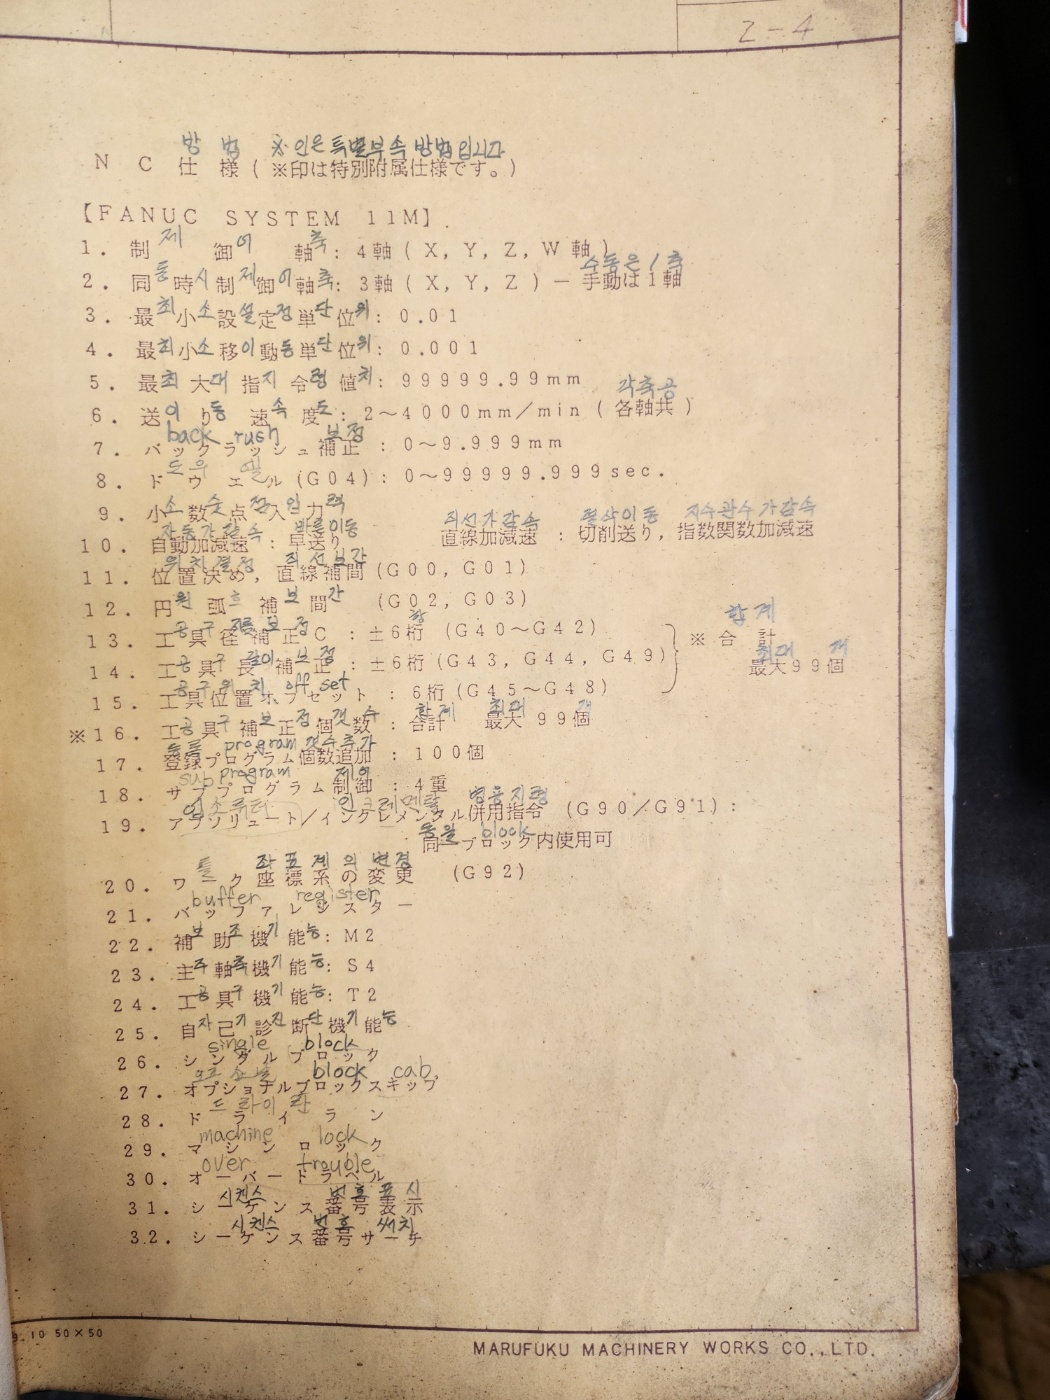 2-4
방 법 ※인은 특별부속 방법입니다
NC仕様(※印は特別附属仕様です。)
【FANUC SYSTEM 11M】
제 어 축
1. 制御軸: 4軸(X, Y, Z, W軸)
동 시 제 어 축 수동은 1축
2. 同時制御軸: 3軸(X, Y, Z)－手動は1軸
최 소 설 정 단 위
3. 最小設定単位: 0.01
최 소 이 동 단 위
4. 最小移動単位: 0.001
최 대 지 령 치
5. 最大指令値: 99999.99mm
이 동 속 도 각축공
6. 送り速度: 2～4000mm/min (各軸共)
back rush 보정
7. バックラッシュ補正: 0～9.999mm
도우 엘
8. ドウエル(G04): 0～99999.999sec.
소 숫 점 입 력
9. 小数点入力
자동가감속 빠른이동 직선가감속 절삭이동 지수관수가감속
10. 自動加減速: 早送り 直線加減速: 切削送り, 指数関数加減速
위치결정 직선보간
11. 位置決め, 直線補間(G00, G01)
원 호 보 간
12. 円弧補間 (G02, G03)
공구 보정 합계
13. 工具径補正C: ±6桁(G40～G42) ※合計
공구 길이 보정 최대 개
14. 工具長補正: ±6桁(G43, G44, G49) 最大99個
공구위치 off set
15. 工具位置オフセット: 6桁(G45～G48)
공구 보정 갯수 합계 최대 개
※16. 工具補正個数: 合計 最大99個
등록 program 갯수추가
17. 登録プログラム個数追加: 100個
sub program 제어
18. サブプログラム制御: 4重
병용지령
19. アブソリュート/インクレメンタル併用指令 (G90/G91):
동일 block
同一ブロック内使用可
좌표계의 변경
20. ワーク座標系の変更 (G92)
buffer register
21. バッファレジスター
보 조 기 능
22. 補助機能: M2
주 축 기 능
23. 主軸機能: S4
공 구 기 능
24. 工具機能: T2
자 기 진 단 기 능
25. 自己診断機能
single block
26. シングルブロック
block cab.
27. オプショナルブロックスキップ
드라이 란
28. ドライラン
machine lock
29. マシンロック
over trouble
30. オーバートラベル
시켄스 번호 표시
31. シーケンス番号表示
시켄스 번호 써치
32. シーケンス番号サーチ
10 50×50
MARUFUKU MACHINERY WORKS CO.,LTD.